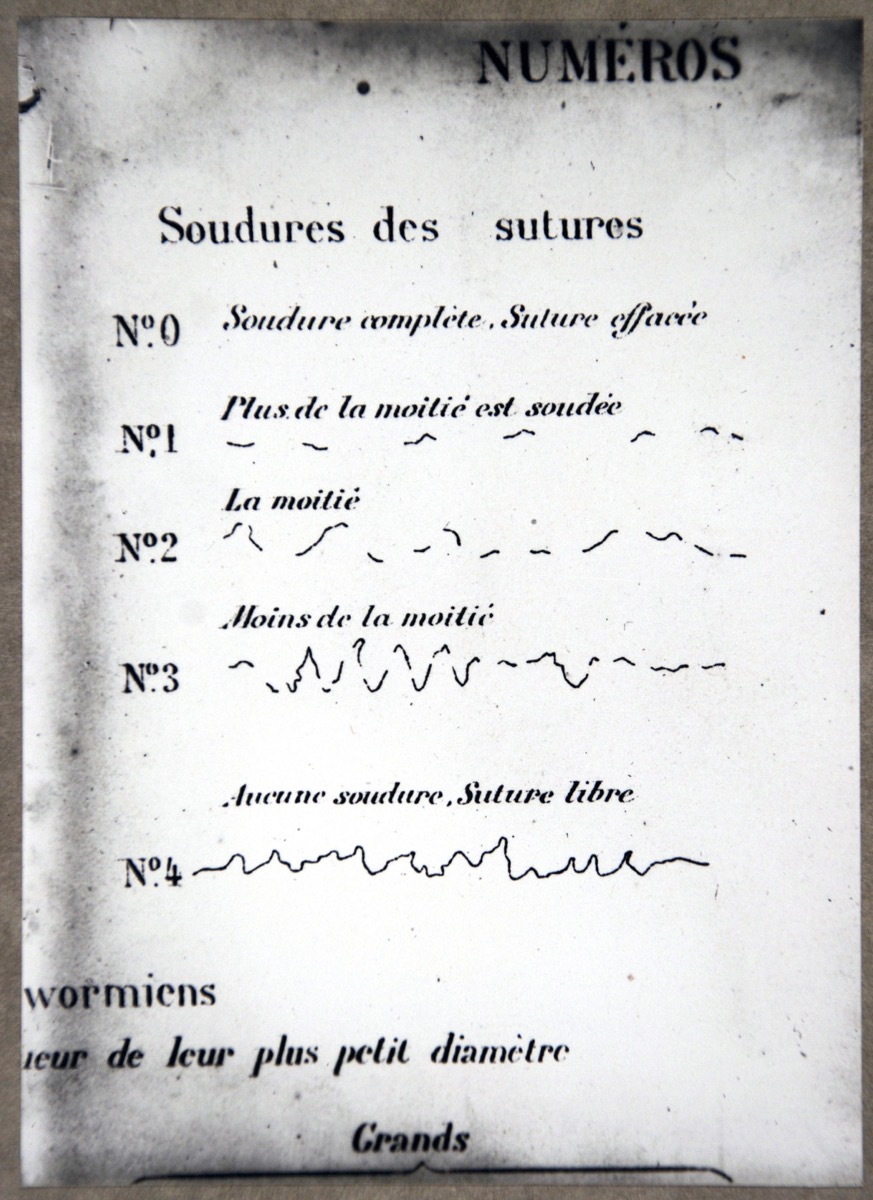 NUMÉROS
Soudures des sutures
Nº.0 Soudure complète. Suture effacée
Plus de la moitié est soudée
Nº.1
La moitié
Nº.2
Moins de la moitié
Nº.3
Aucune soudure. Suture libre
Nº.4
wormiens
de leur plus petit diamètre
Grands